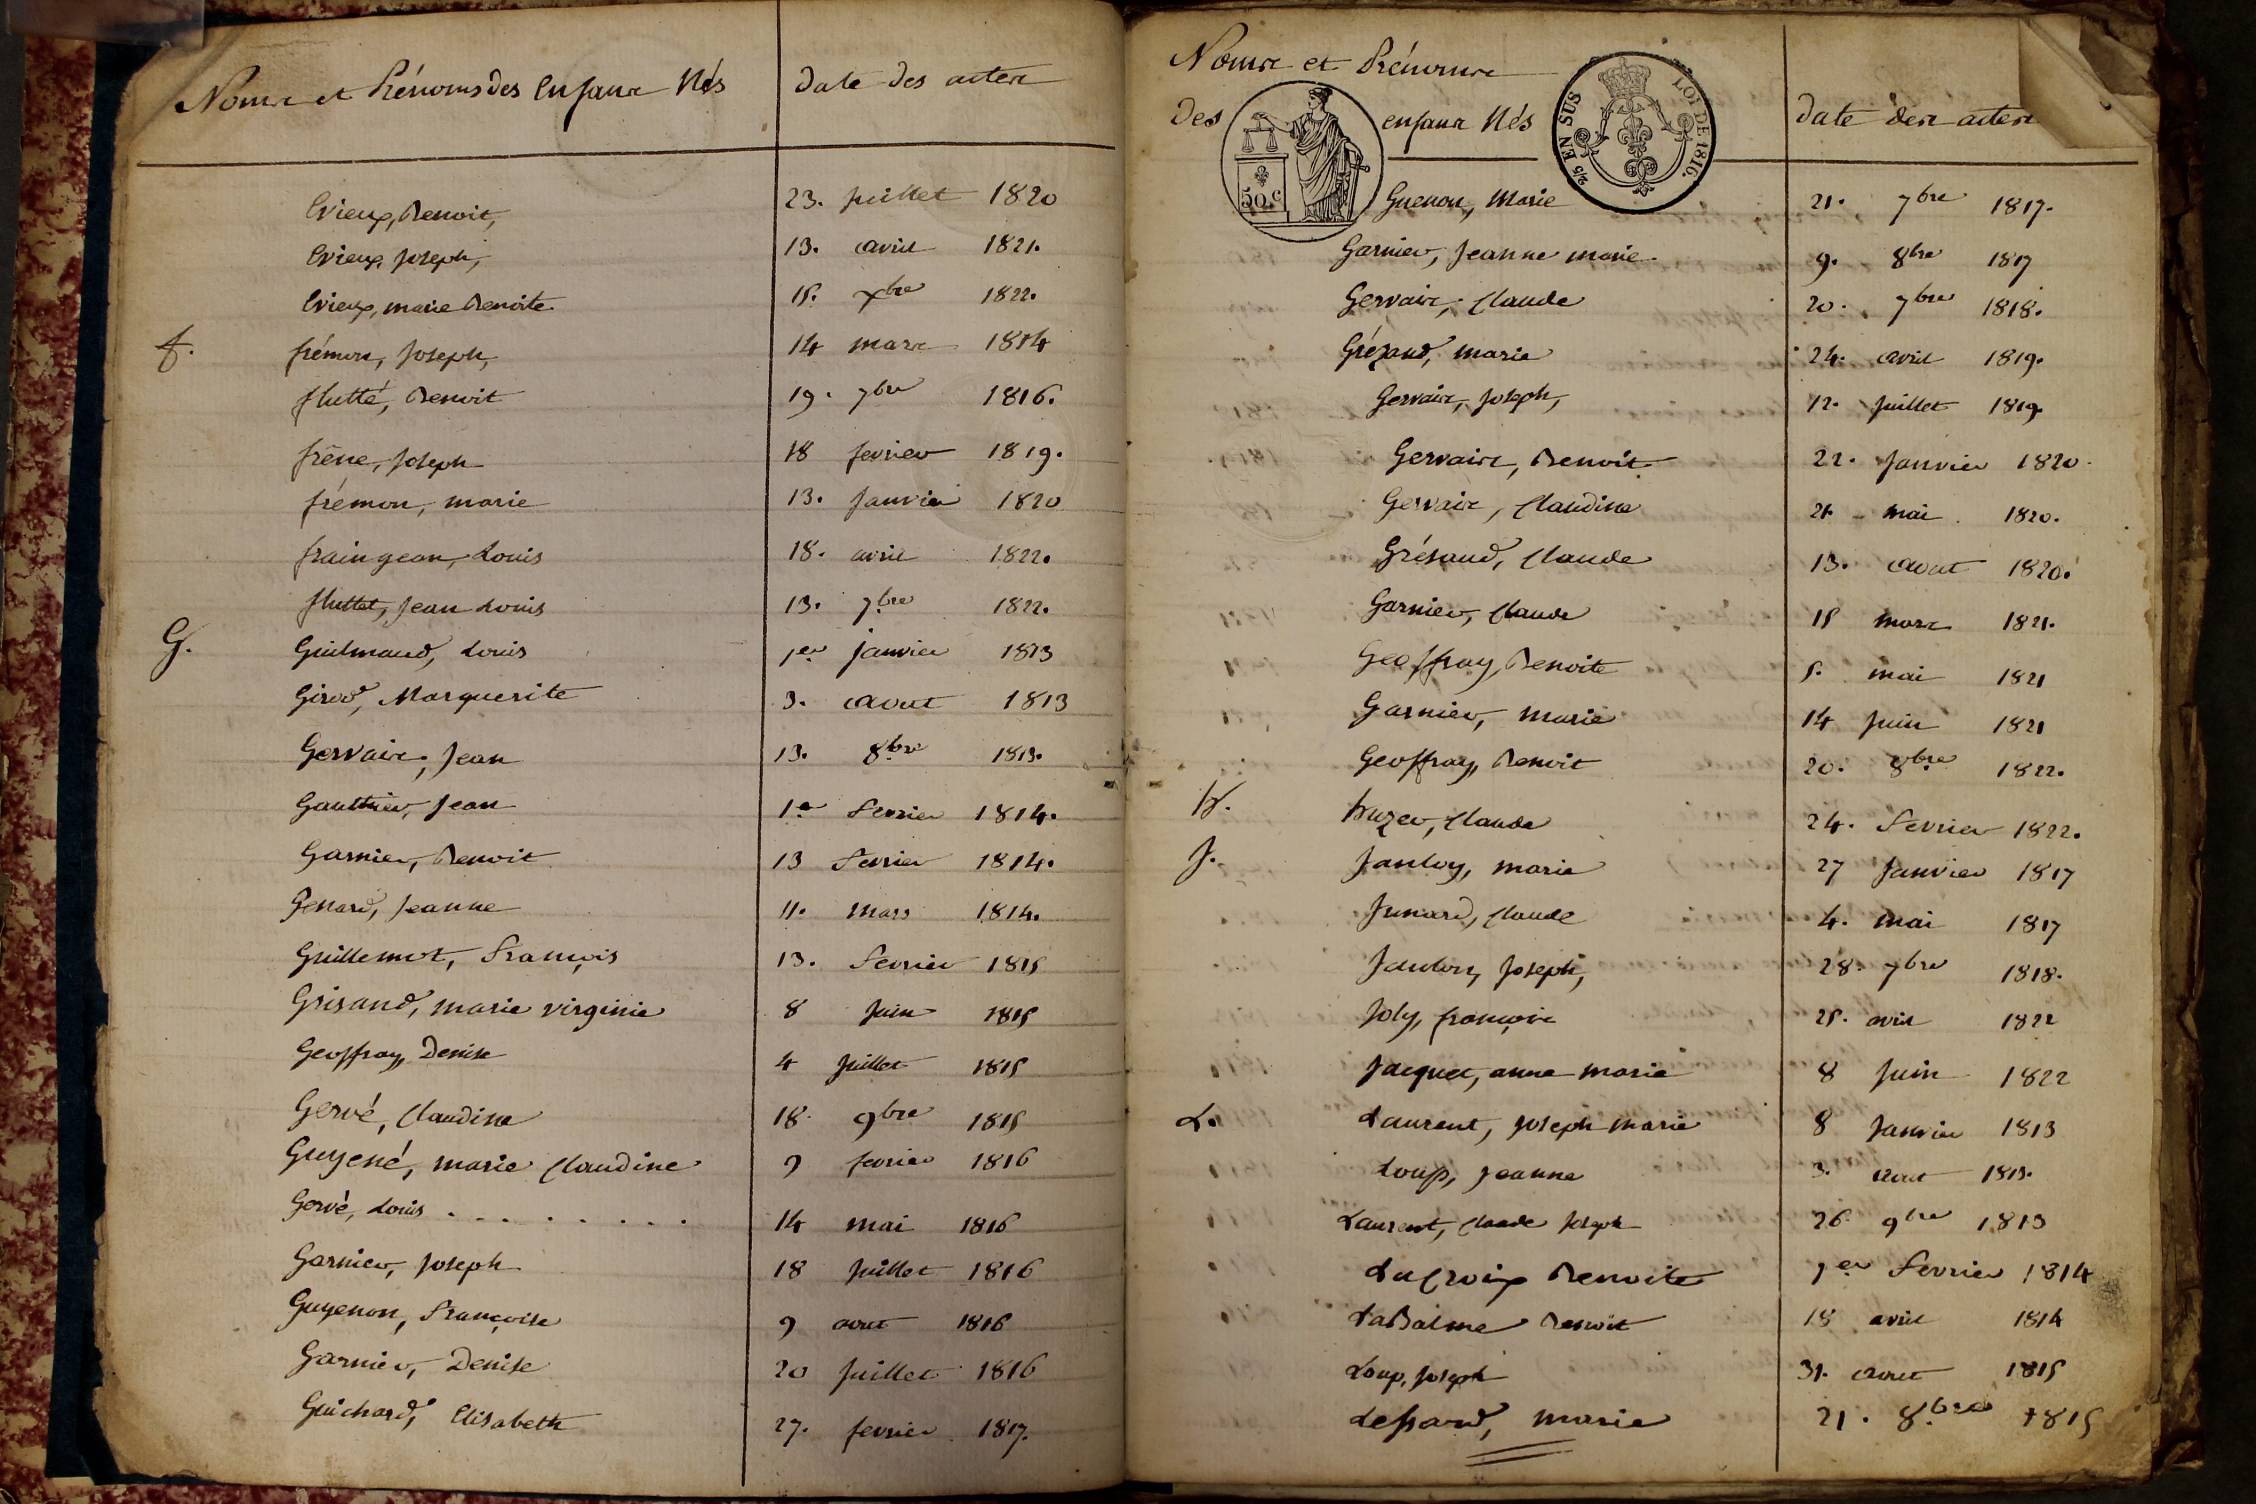 Noms et Prénoms des Enfans Nés
date des actes
Evieux, Benoit, 23. juillet 1820
Evieux, joseph, 13. avril 1821.
Evieux, marie Benoite 15. xbre 1822.
f. frémon, joseph, 14 mars 1814
flutté, Benoit 19. 7bre 1816.
frêne, joseph 18 fevrier 1819.
frémon, marie 13. janvier 1820
fraingeon, Louis 18. avril 1822.
fluttet, jean Louis 13. 7bre 1822.
G. Guilmaud, Louis 1er janvier 1813
Girod, Marguerite 3. aout 1813
Gervais, jean 13. 8bre 1813.
Gauthier, jean 1er fevrier 1814.
Garnier, Benoit 13 fevrier 1814.
Genard, jeanne 11. mars 1814.
Guillemot, François 13. fevrier 1815
Grisaud, marie virginie 8 juin 1815
Geoffray, Denise 4 juillet 1815
Gervé, Claudine 18. 9bre 1815
Guyené, marie Claudine 9 fevrier 1816
Gervé, Louis . . . . . . . . 14 mai 1816
Garnier, joseph 18 juillet 1816
Guyenon, Françoise 9 aout 1816
Garnier, Denise 20 juillet 1816
Guichard, Elisabeth 27. fevrier 1817.
Noms et Prénoms
des enfans Nés
date des actes
50.c
2/5 EN SUS LOI DE 1816.
Guenon, Marie 21. 7bre 1817.
Garnier, jeanne marie 9. 8bre 1817
Gervais, Claude 20. 7bre 1818.
Grézaud, marie 24. avril 1819.
Gervais, joseph, 12. juillet 1819.
Gervais, Benoit 22. janvier 1820.
Gervais, Claudine 21 mai 1820.
Grésaud, Claude 13. aout 1820.
Garnier, Claude 15 mars 1821.
Geoffray, Benoite 5. mai 1821
Garnier, marie 14 juin 1821
Geoffray, Benoit 20. 8bre 1822.
h. huzer, Claude 24. fevrier 1822.
J. marie 27 janvier 1817
Junard, Claude 4. mai 1817
joseph, 28. 7bre 1818.
Joly, françois 25. avril 1822
Jacquet, anne marie 8 juin 1822
L. Laurent, joseph marie 8 janvier 1813
Loup, jeanne 3. aout 1813.
Laurent, Claude joseph 26 9bre 1813
La Croix Benoite 1er fevrier 1814
LaBalme Benoit 18 avril 1814
Loup, joseph 31. aout 1815
Lessard, marie 21. 8bre 1815